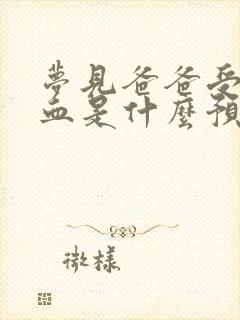 夢見爸爸受
血是什麼預
微樣